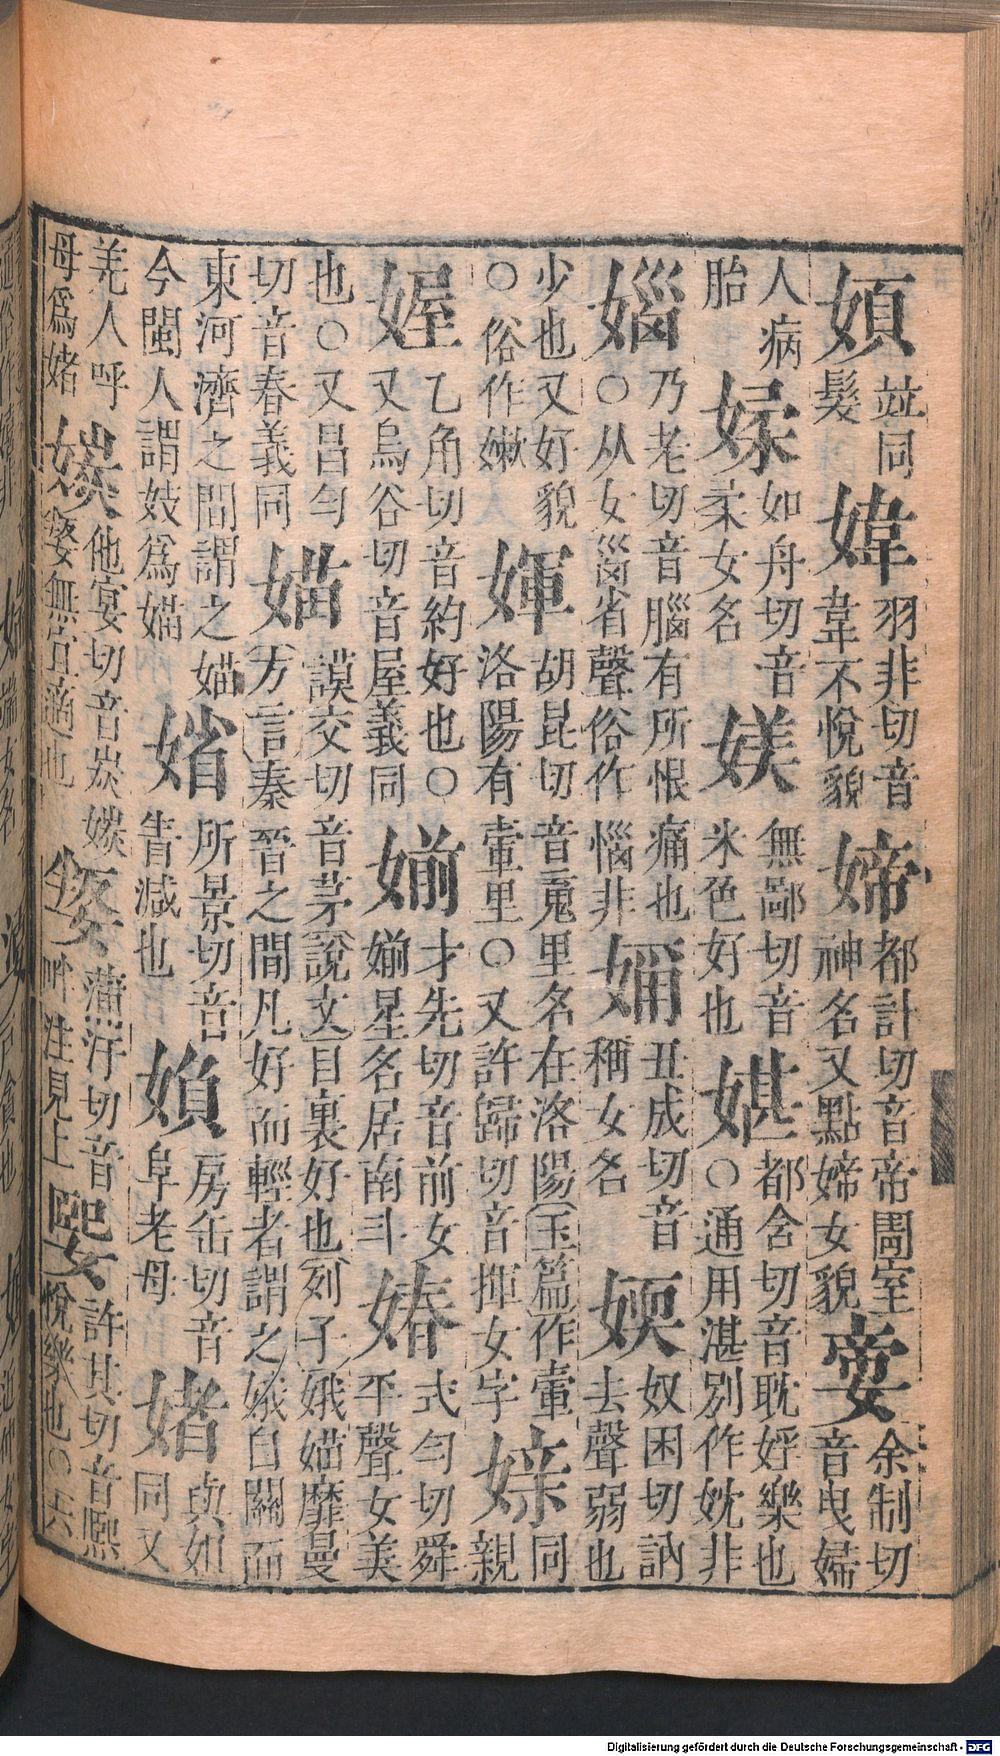 竝同髮 媁 羽非切音韋不悅貌 媂 都計切音帝周室神名又點媂女貌 余制切音曳婦
人病胎 媃 如舟切音柔女名 媄 無鄙切音米色好也 媅 都含切音耽好樂也○通用湛別作妉非
㛴 乃老切音腦有所恨痛也○从女𡿺省聲俗作惱非 丑成切音稱女名 媆 奴困切訥去聲弱也
少也又好貌○俗作嫩 媈 胡昆切音䰟里名在洛陽(玉篇)作 洛陽有里○又許歸切音揮女字 同親
媉 乙角切音約好也○又烏谷切音屋義同 媊 才先切音前女媊星名居南斗 媋 式勻切舜平聲女美
也○又昌勻切音春義同 媌 謨交切音茅(說文)目裏好也(列子)娥媌靡曼(方言)秦晉之間凡好而輕者謂之娥自關而
東河濟之間謂之媌今閩人謂妓爲媌 媘 所景切音眚減也 媍 房缶切音阜老母 媎 與如同又
羌人呼母爲媎 他宴切音炭 無宜適也 蒲汗切音叛注見上 媐 許其切音熙悅樂也○六
Digitalisierung gefördert durch die Deutsche Forschungsgemeinschaft - DFG